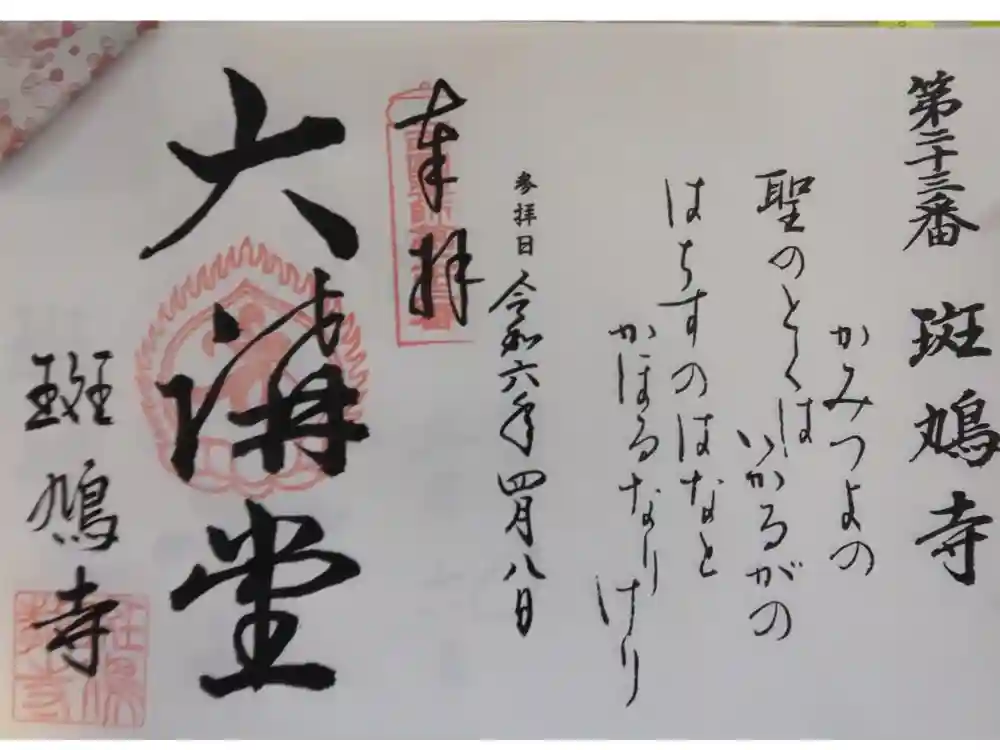 第二十三番 斑鳩寺
かみつよの
聖のとくは いかるがの
はちすのはなと
かほるなりけり
参拝日 令和六年四月八日
奉拝
大講堂
斑鳩寺